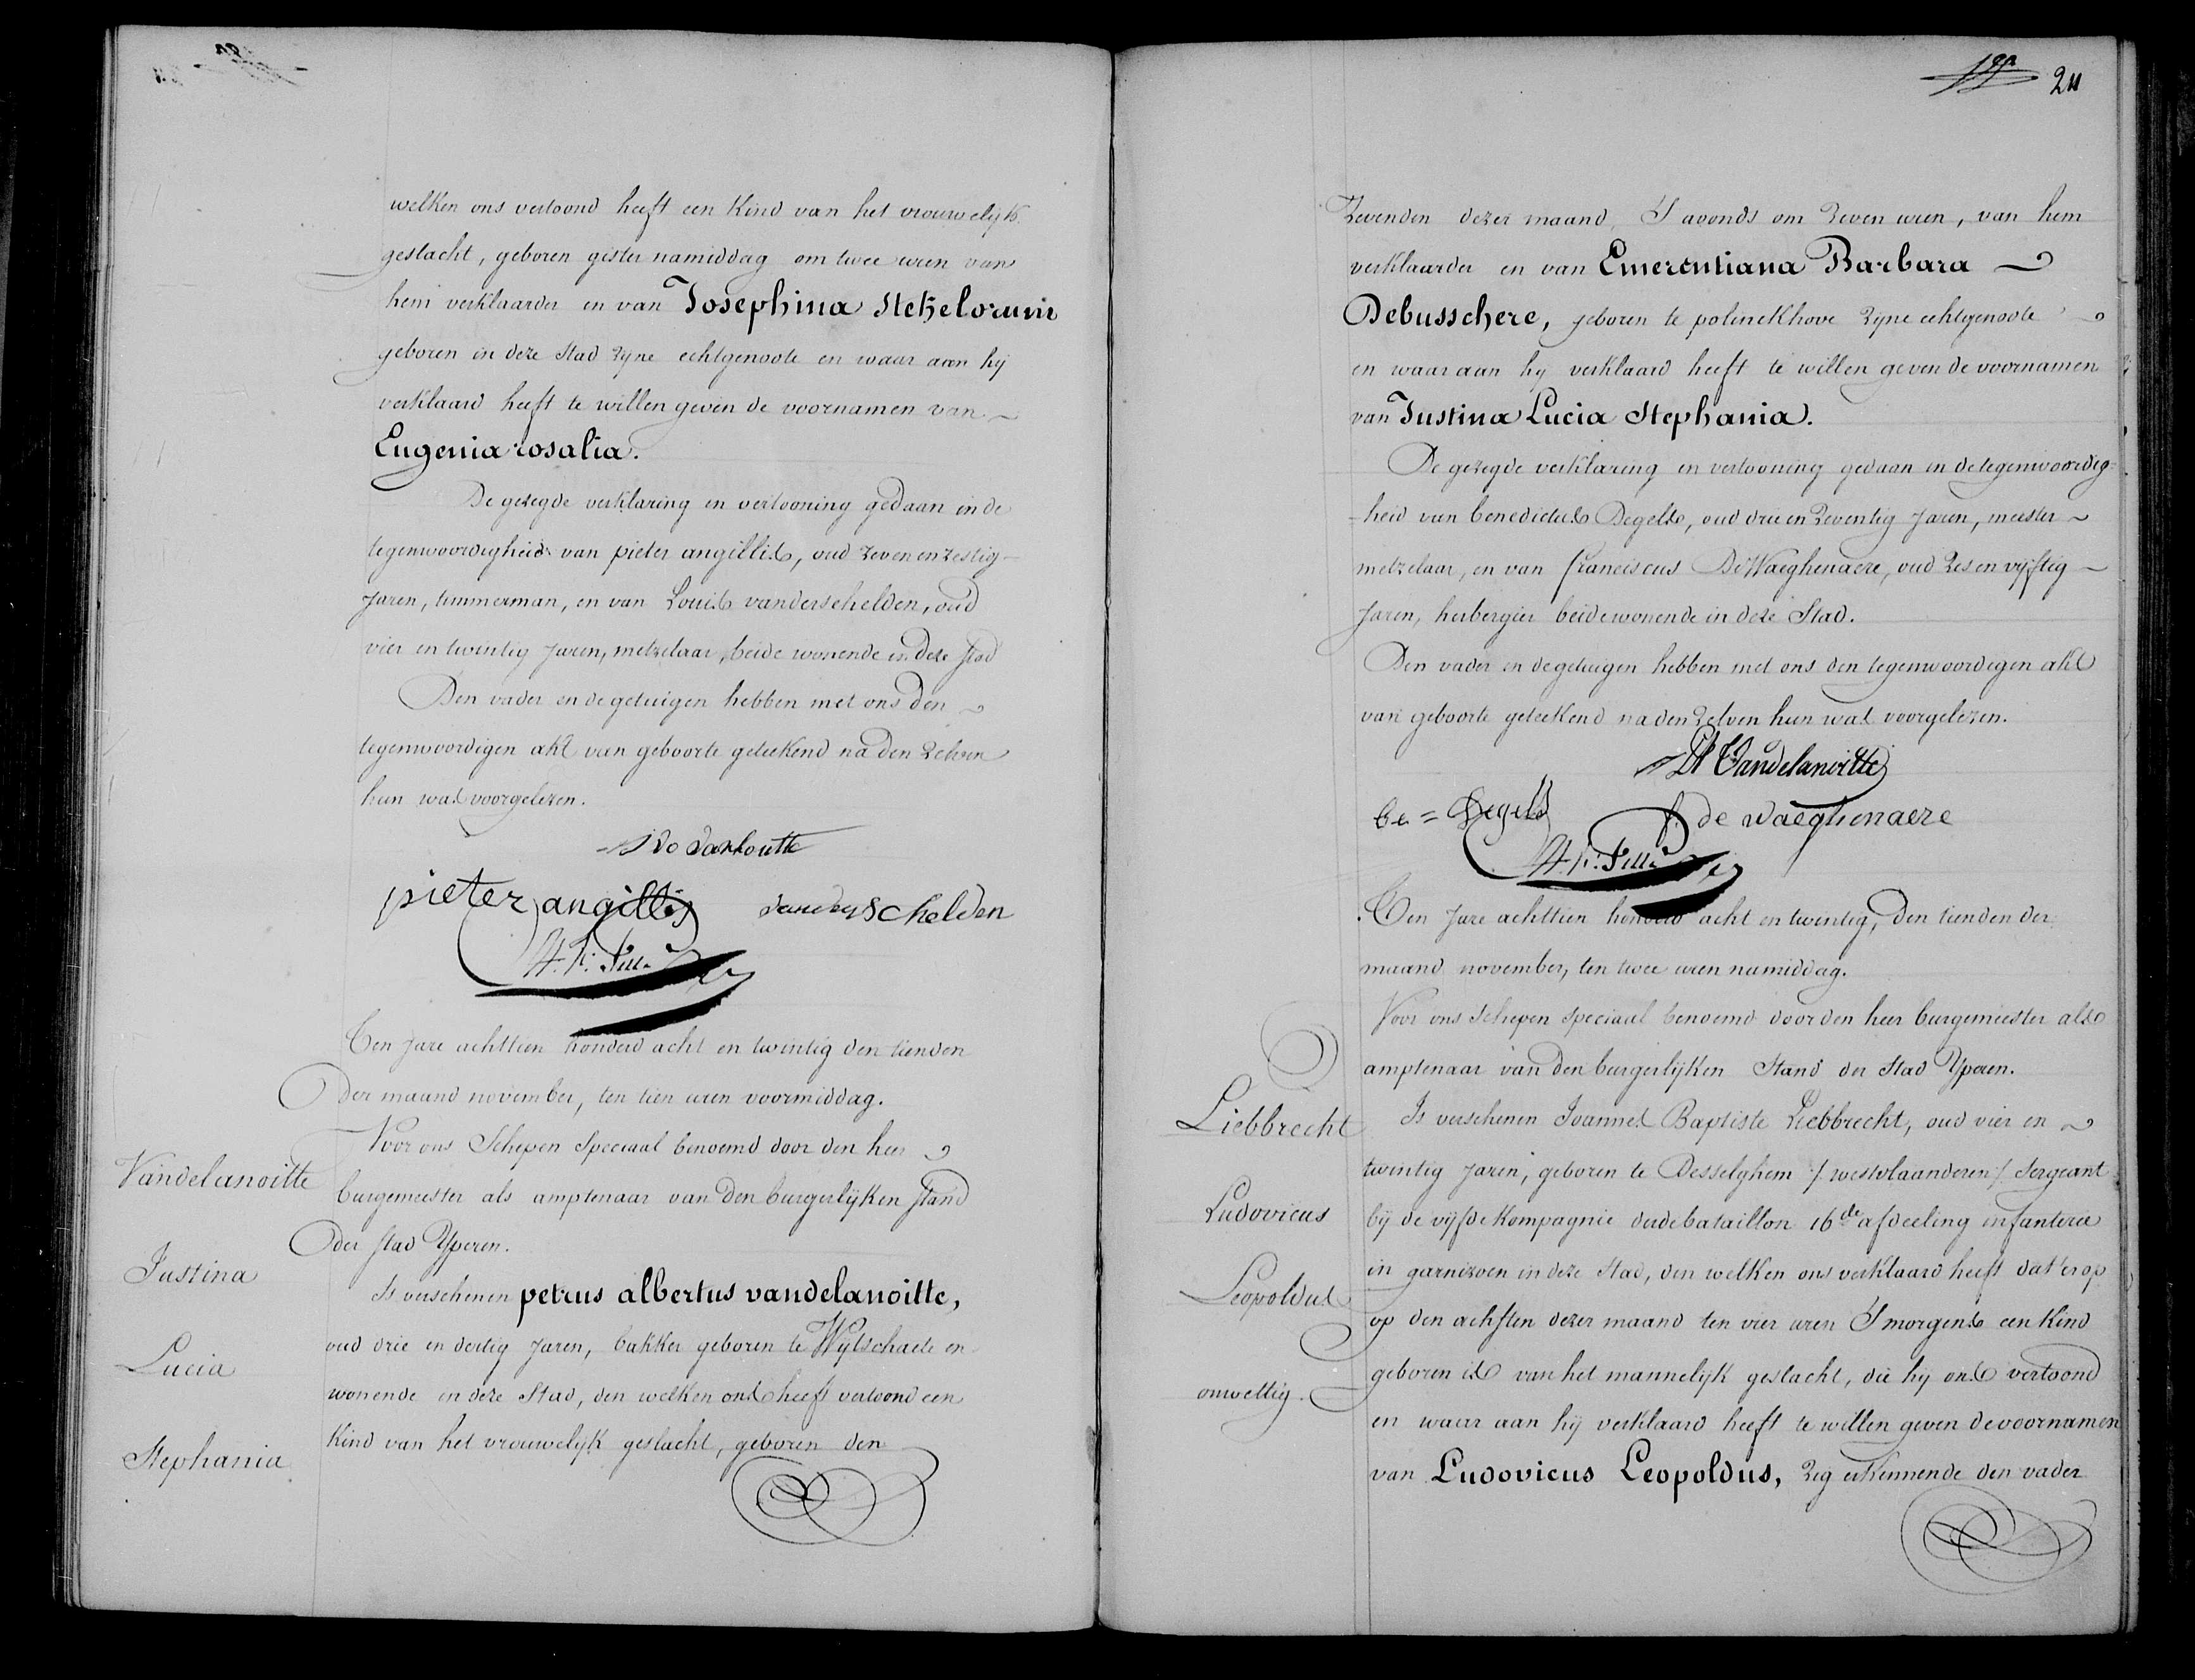 welken ons vertoond heeft een Kind van het vrouwelijk
geslacht, geboren gister namiddag om twee uren van
hem verklaarder en van Josephina Stekelorum
geboren in deze Stad zyne echtgenoote en waar aan hij
verklaard heeft te willen geven de voornamen van
Eugenia rosalia.
De gezegde verklaring en vertooning gedaan in de
tegenwoordigheid van pieter angillis, oud zeven en zestig
jaren, timmerman, en van Louis vanderschelden, oud
vier en twintig jaren, metzelaar, beide wonende in deze stad
Den vader en de getuigen hebben met ons den
tegenwoordigen akt van geboorte geteekend na den zelven
hun was voorgelezen.
Ivo Vanhoutte
pieter angillis vanderschelden
Ten jare achttien honderd acht en twintig den tienden
der maand november, ten tien uren voormiddag.
Voor ons Schepen Speciaal benoemd door den heer
burgemeester als amptenaar van den burgerlijken stand
der stad Yperen.
Is verschenen petrus albertus vandelanoitte,
oud drie en dertig jaren, bakker geboren te Wytschaete en
wonende in deze Stad, den welken ons heeft vertoond een
Kind van het vrouwelyk geslacht, geboren den
Vandelanoitte
Justina
Lucia
Stephania
211
Zevenden dezer maand, S avonds om zeven uren, van hem
verklaarder en van Emerentiana Barbara
Debusschere, geboren te polinckhove zyne echtgenoote
en waar aan hy verklaard heeft te willen geven de voornamen
van Justina Lucia Stephania.
De gezegde verklaring en vertooning gedaan in de tegenwoordig=
=heid van benedictus Degels, oud drie en zeventig jaren, meester
metzelaar, en van franciscus De Waeghenaere, oud zes en vyftig
jaren, herbergier beide wonende in deze Stad.
Den vader en de getuigen hebben met ons den tegenwoordigen akt
van geboorte geteekend na den zelven hun was voorgelezen.
PA Vandelanoitte
be = Degels f. de waeghenaere
Ten jare achttien honderd acht en twintig, den tienden der
maand november, ten twee uren namiddag.
Voor ons Schepen speciaal benoemd door den heer burgemeester als
amptenaar van den burgerlijken Stand der Stad Yperen.
Is verschenen Joannes Baptiste Liebbrecht, oud vier en
twintig jaren, geboren te Desselghem /. westvlaanderen ./ Sergeant
bij de vyfde Kompagnie derde bataillon 16de afdeeling infanterie
in garnizoen in deze Stad, den welken ons verklaard heeft dat er op
op den achsten dezer maand ten vier uren S morgens een Kind
geboren is van het mannelijk geslacht, die hy ons vertoond
en waar aan hij verklaard heeft te willen geven de voornamen
van Ludovicus Leopoldus, zig erkennende den vader
Liebbrecht
Ludovicus
Leopoldus
onwettig.